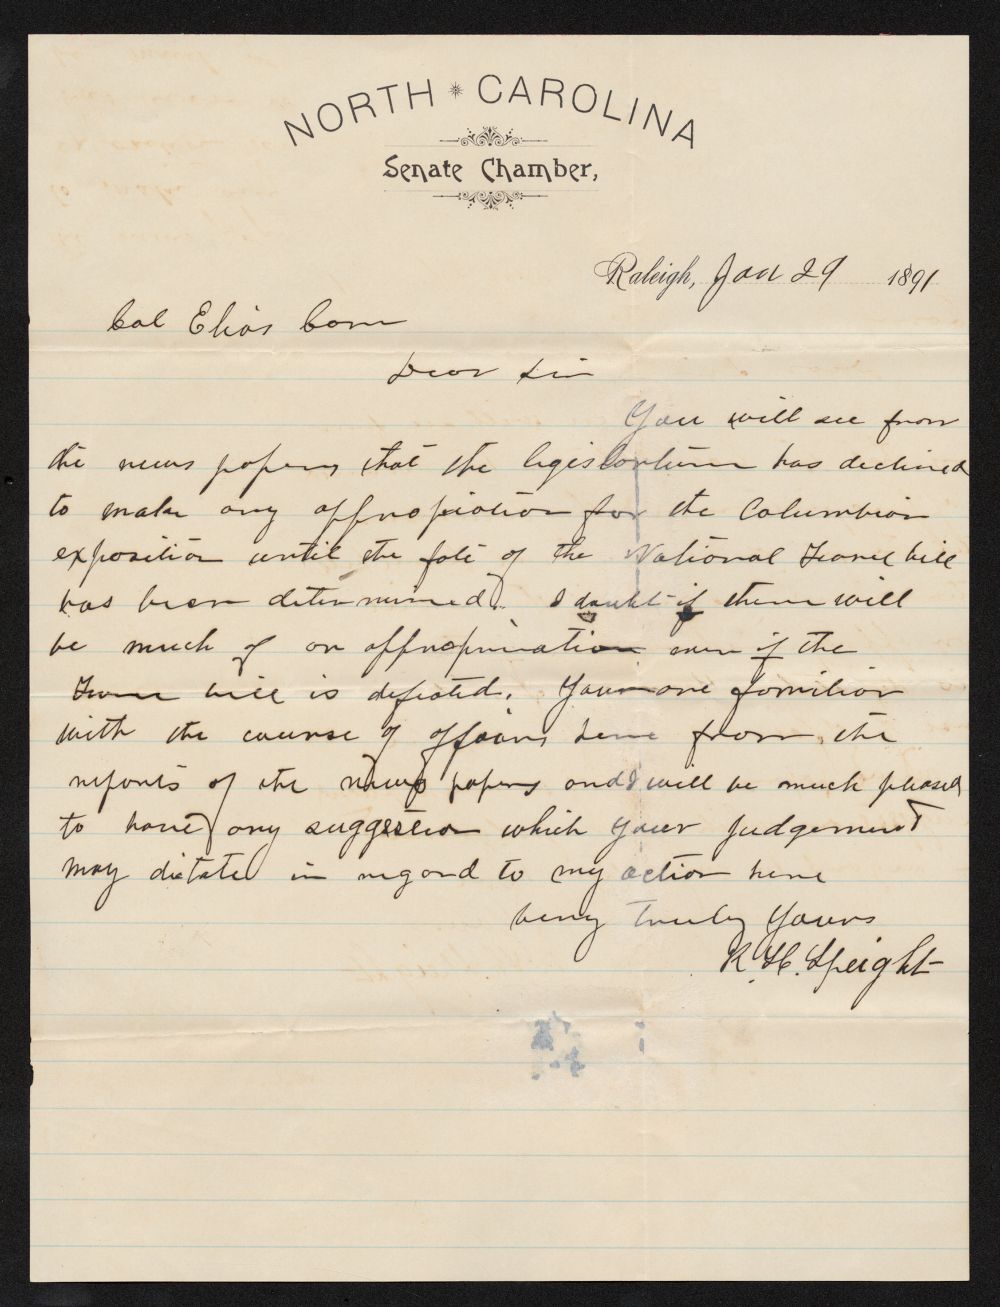 NORTH * CAROLINA
Senate Chamber,
Raleigh, Jan 29 1891
Col Elias Carr
Dear Sir
You will see from
the news papers that the legislature has declined
to make any appropiation for the Columbian
exposition until the fate of the National Force bill
has been determined. I doubt if there will
be much of an appropriation even if the
Force bill is defeated. You are familiar
with the course of affairs here from the
reports of the news papers and I will be much pleased
to have any suggestion which your judgement
may dictate in regard to my action here
Very Truly Yours
R. H. Speight